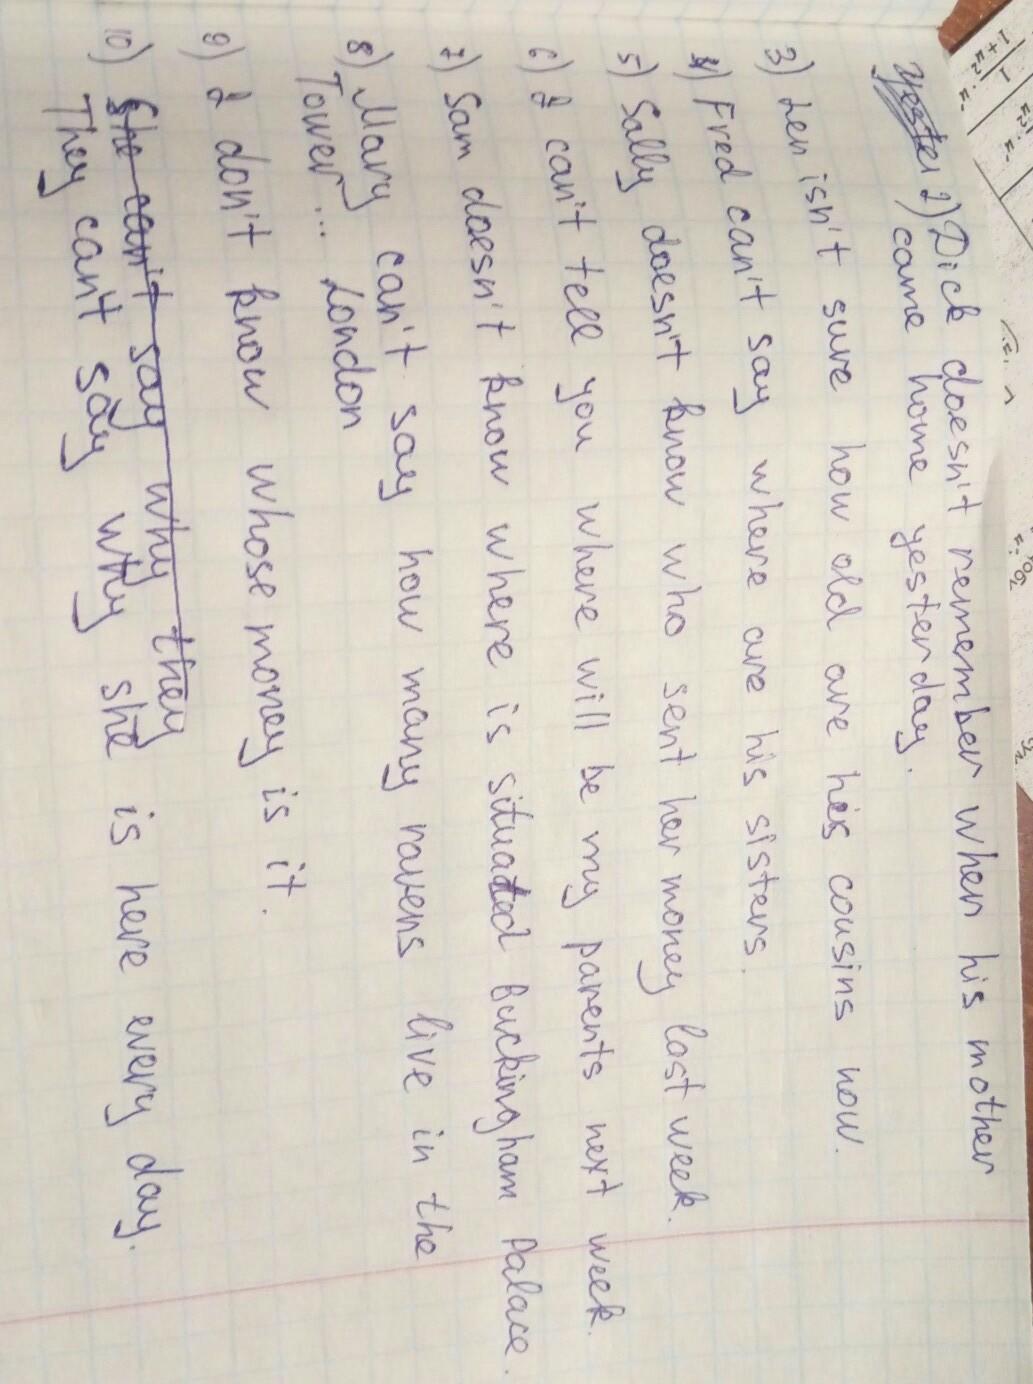 2) Dick doesn't remember when his mother
came home yesterday.
3) Len isn't sure how old are his cousins now.
4) Fred can't say where are his sisters.
5) Sally doesn't know who sent her money last week.
6) I can't tell you where will be my parents next week.
7) Sam doesn't know where is situated Buckingham Palace.
8) Mary can't say how many ravens live in the
Tower... London
9) I don't know whose money is it.
10) She can't say why they
They can't say why she is here every day.